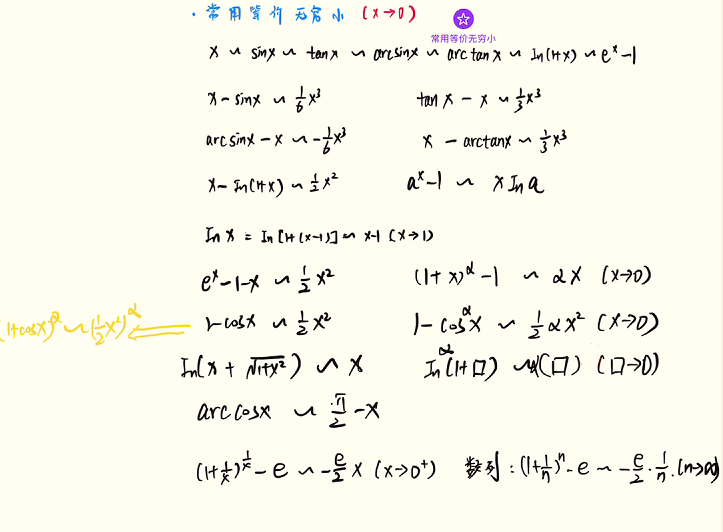 · 常用等价无穷小 (x→0)
常用等价无穷小
x ~ sinx ~ tanx ~ arcsinx ~ arctanx ~ In(1+x) ~ e^x-1
x-sinx ~ 1/6 x^3    tanx-x ~ 1/3 x^3
arcsinx-x ~ -1/6 x^3    x-arctanx ~ 1/3 x^3
x-In(1+x) ~ 1/2 x^2    a^x-1 ~ xIna
Inx = In[1+(x-1)] ~ x-1 (x→1)
e^x-1-x ~ 1/2 x^2    (1+x)^α-1 ~ αx (x→0)
(1+cosx)^α ~ (1/2 x^2)^α ⇐ 1-cosx ~ 1/2 x^2    1-cos^α x ~ 1/2 αx^2 (x→0)
In(x+√(1+x^2)) ~ x    In^α(1+□) ~ (□) (□→0)
arccosx ~ π/2 - x
(1+1/x)^(1/x) - e ~ -e/2 x (x→0^+)    数列: (1+1/n)^n - e ~ -e/2 · 1/n. (n→∞)